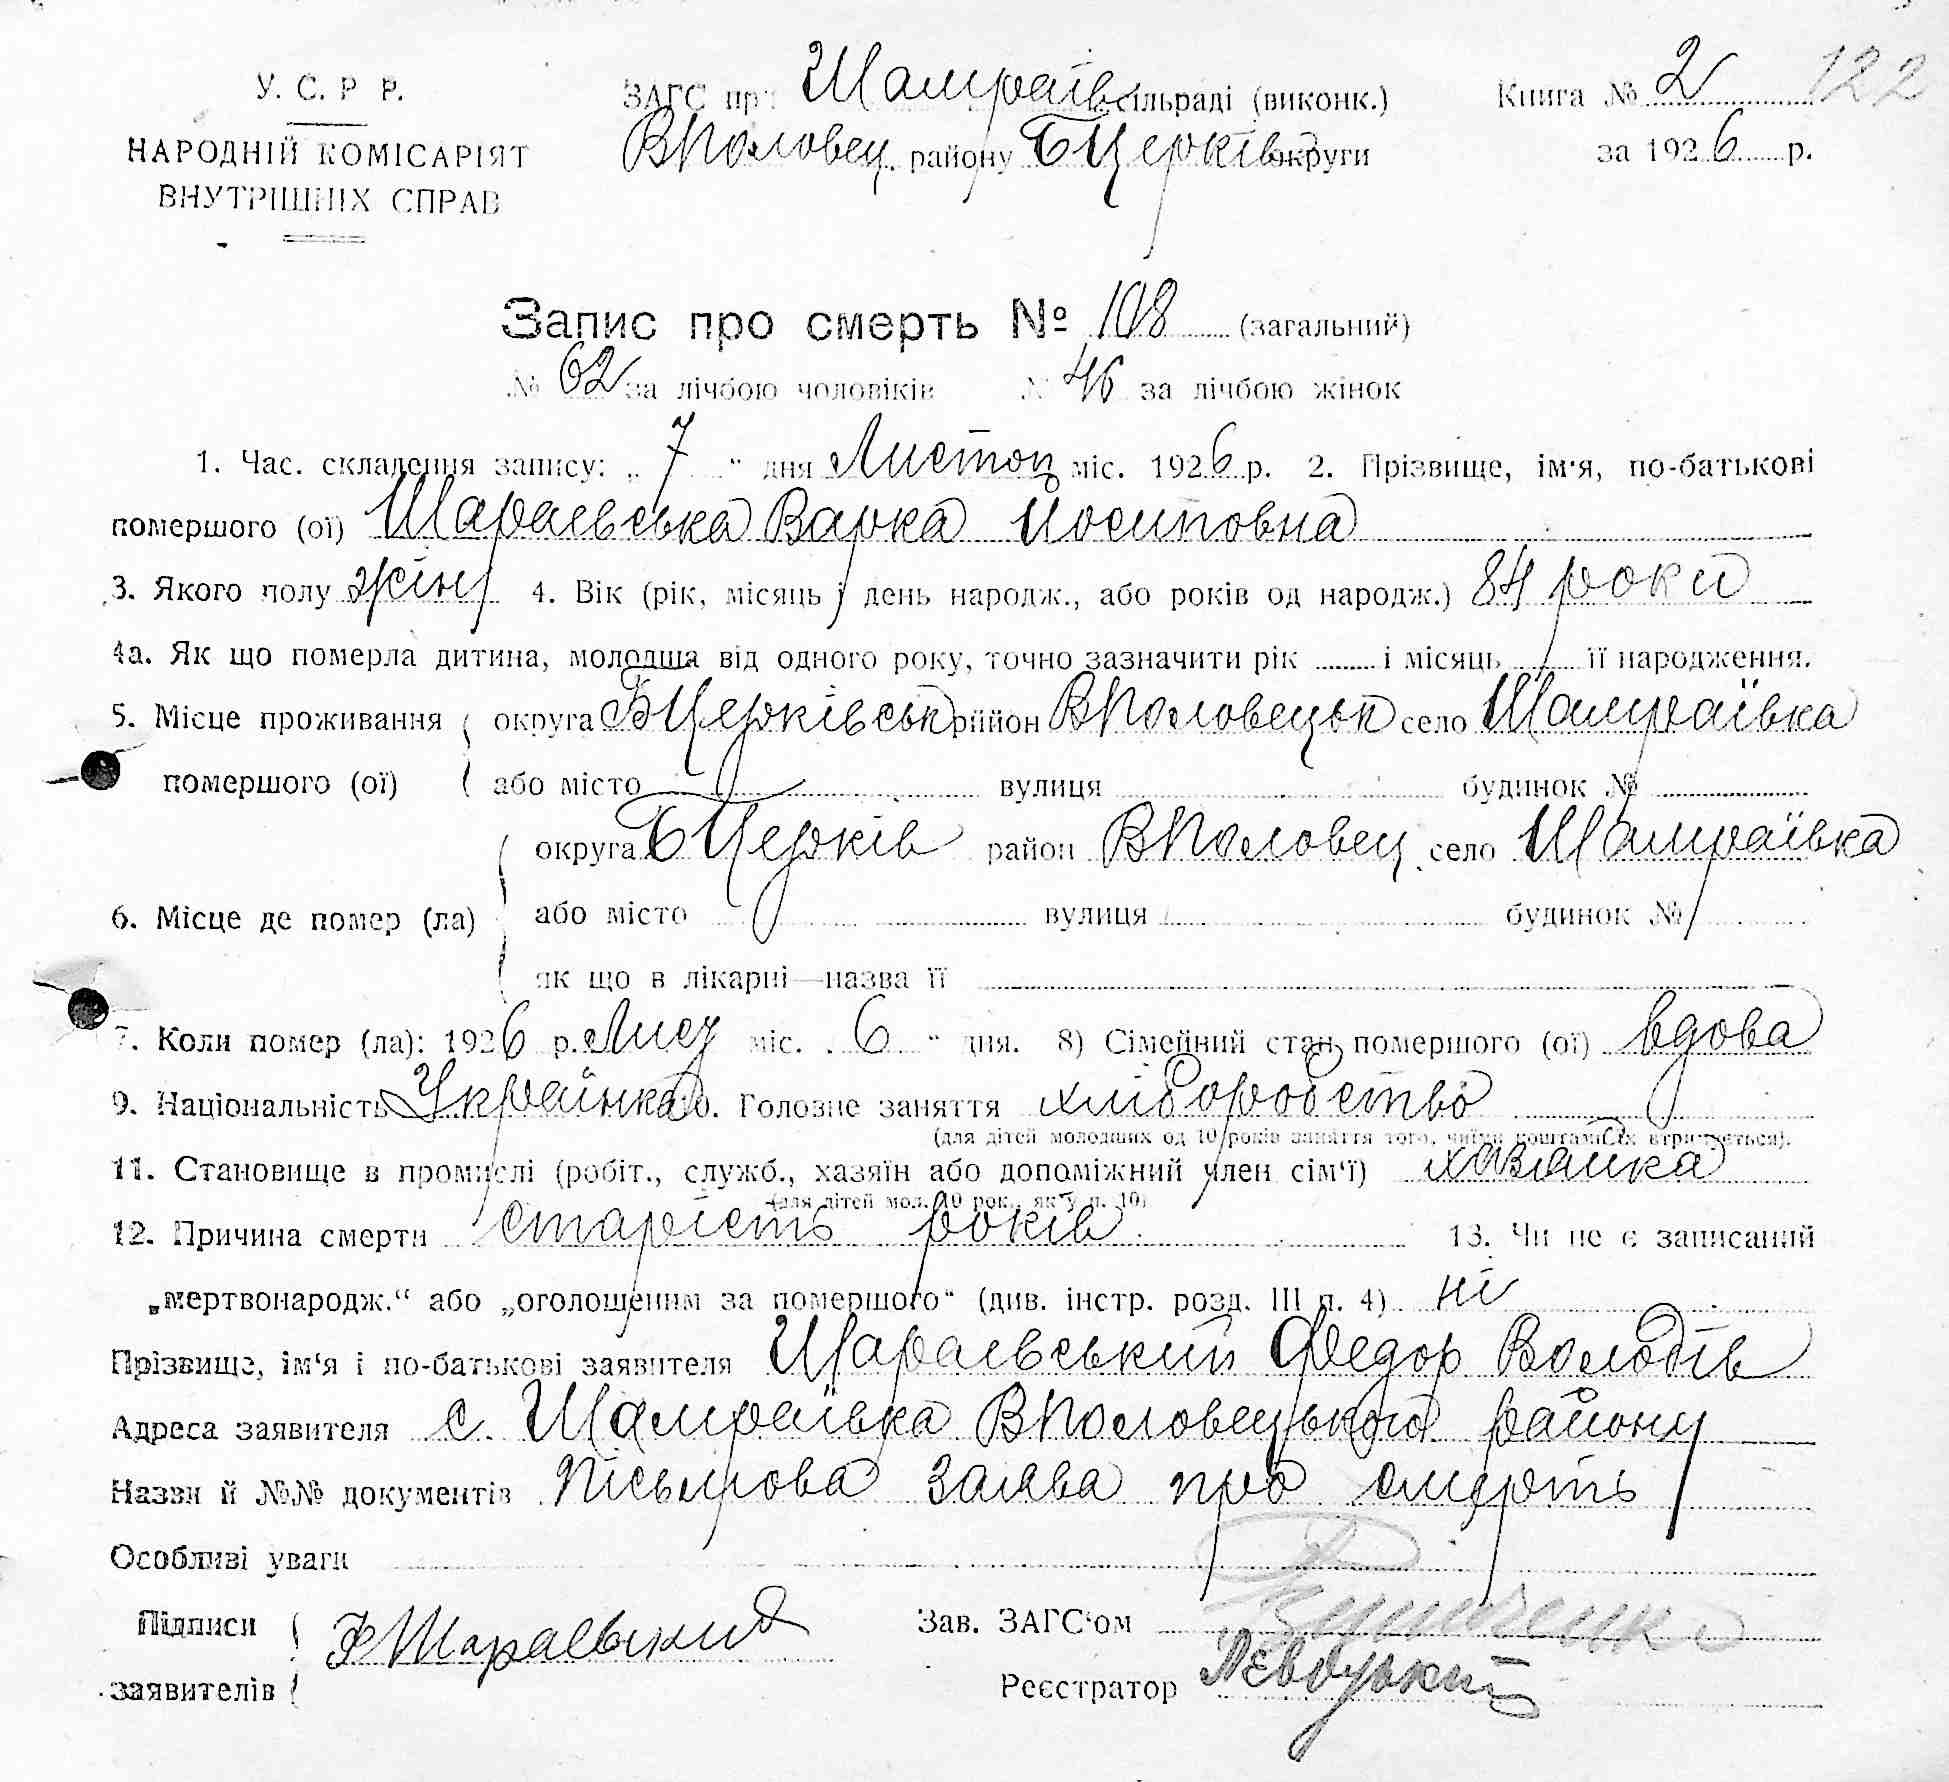 У. С. Р Р.
НАРОДНІЙ КОМІСАРІЯТ
ВНУТРІШНІХ СПРАВ
ЗАГС при Шамраїв сільраді (виконк.)
ВПоловец. району БЦерків округи
Книга № 2 122
за 1926 р.
Запис про смерть № 108 (загальний)
№ 62 за лічбою чоловіків № 46 за лічбою жінок
1. Час. складення запису: „ 7 " дня Листоп міс. 1926 р. 2. Прізвище, ім'я, по-батькові
помершого (ої) Шараевська Варка Йосиповна
3. Якого полу жін 4. Вік (рік, місяць і день народж., або років од народж.) 84 роки
4а. Як що померла дитина, молодша від одного року, точно зазначити рік і місяць її народження.
5. Місце проживання округа БЦерківськ район ВПоловецьк село Шамраївка
помершого (ої) або місто вулиця будинок №
округа БЦерків район ВПоловец. село Шамраївка
6. Місце де помер (ла) або місто вулиця будинок №
як що в лікарні—назва її
7. Коли помер (ла): 1926 р. Лист міс. 6 " дня. 8) Сімейний стан помершого (ої) вдова
9. Національність Українка 10. Головне заняття хліборобство
(для дітей молодших од 10 років заняття того, чиїми коштами їх втримується).
11. Становище в промислі (робіт., служб., хазяїн або допоміжний член сім'ї) хазяйка
(для дітей мол. 10 рок., як у п. 10)
12. Причина смерти старість років. 13. Чи не є записаний
„мертвонародж.“ або „оголошеним за помершого“ (див. інстр. розд. III п. 4) ні
Прізвище, ім'я і по-батькові заявителя Шараевський Федор Володів
Адреса заявителя с. Шамраївка ВПоловецького району
Назви й №№ документів Пісьмова заява про смерть
Особливі уваги
Підписи Ф Шараевький Зав. ЗАГС'ом
заявителів Реєстратор